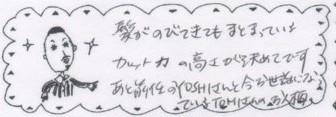 髪がのびてきてもまとまっている
カット力の高さがうれ
初めてです
あと前任のYOSHIさんと今お世話にな
っているTOHさんのお人柄